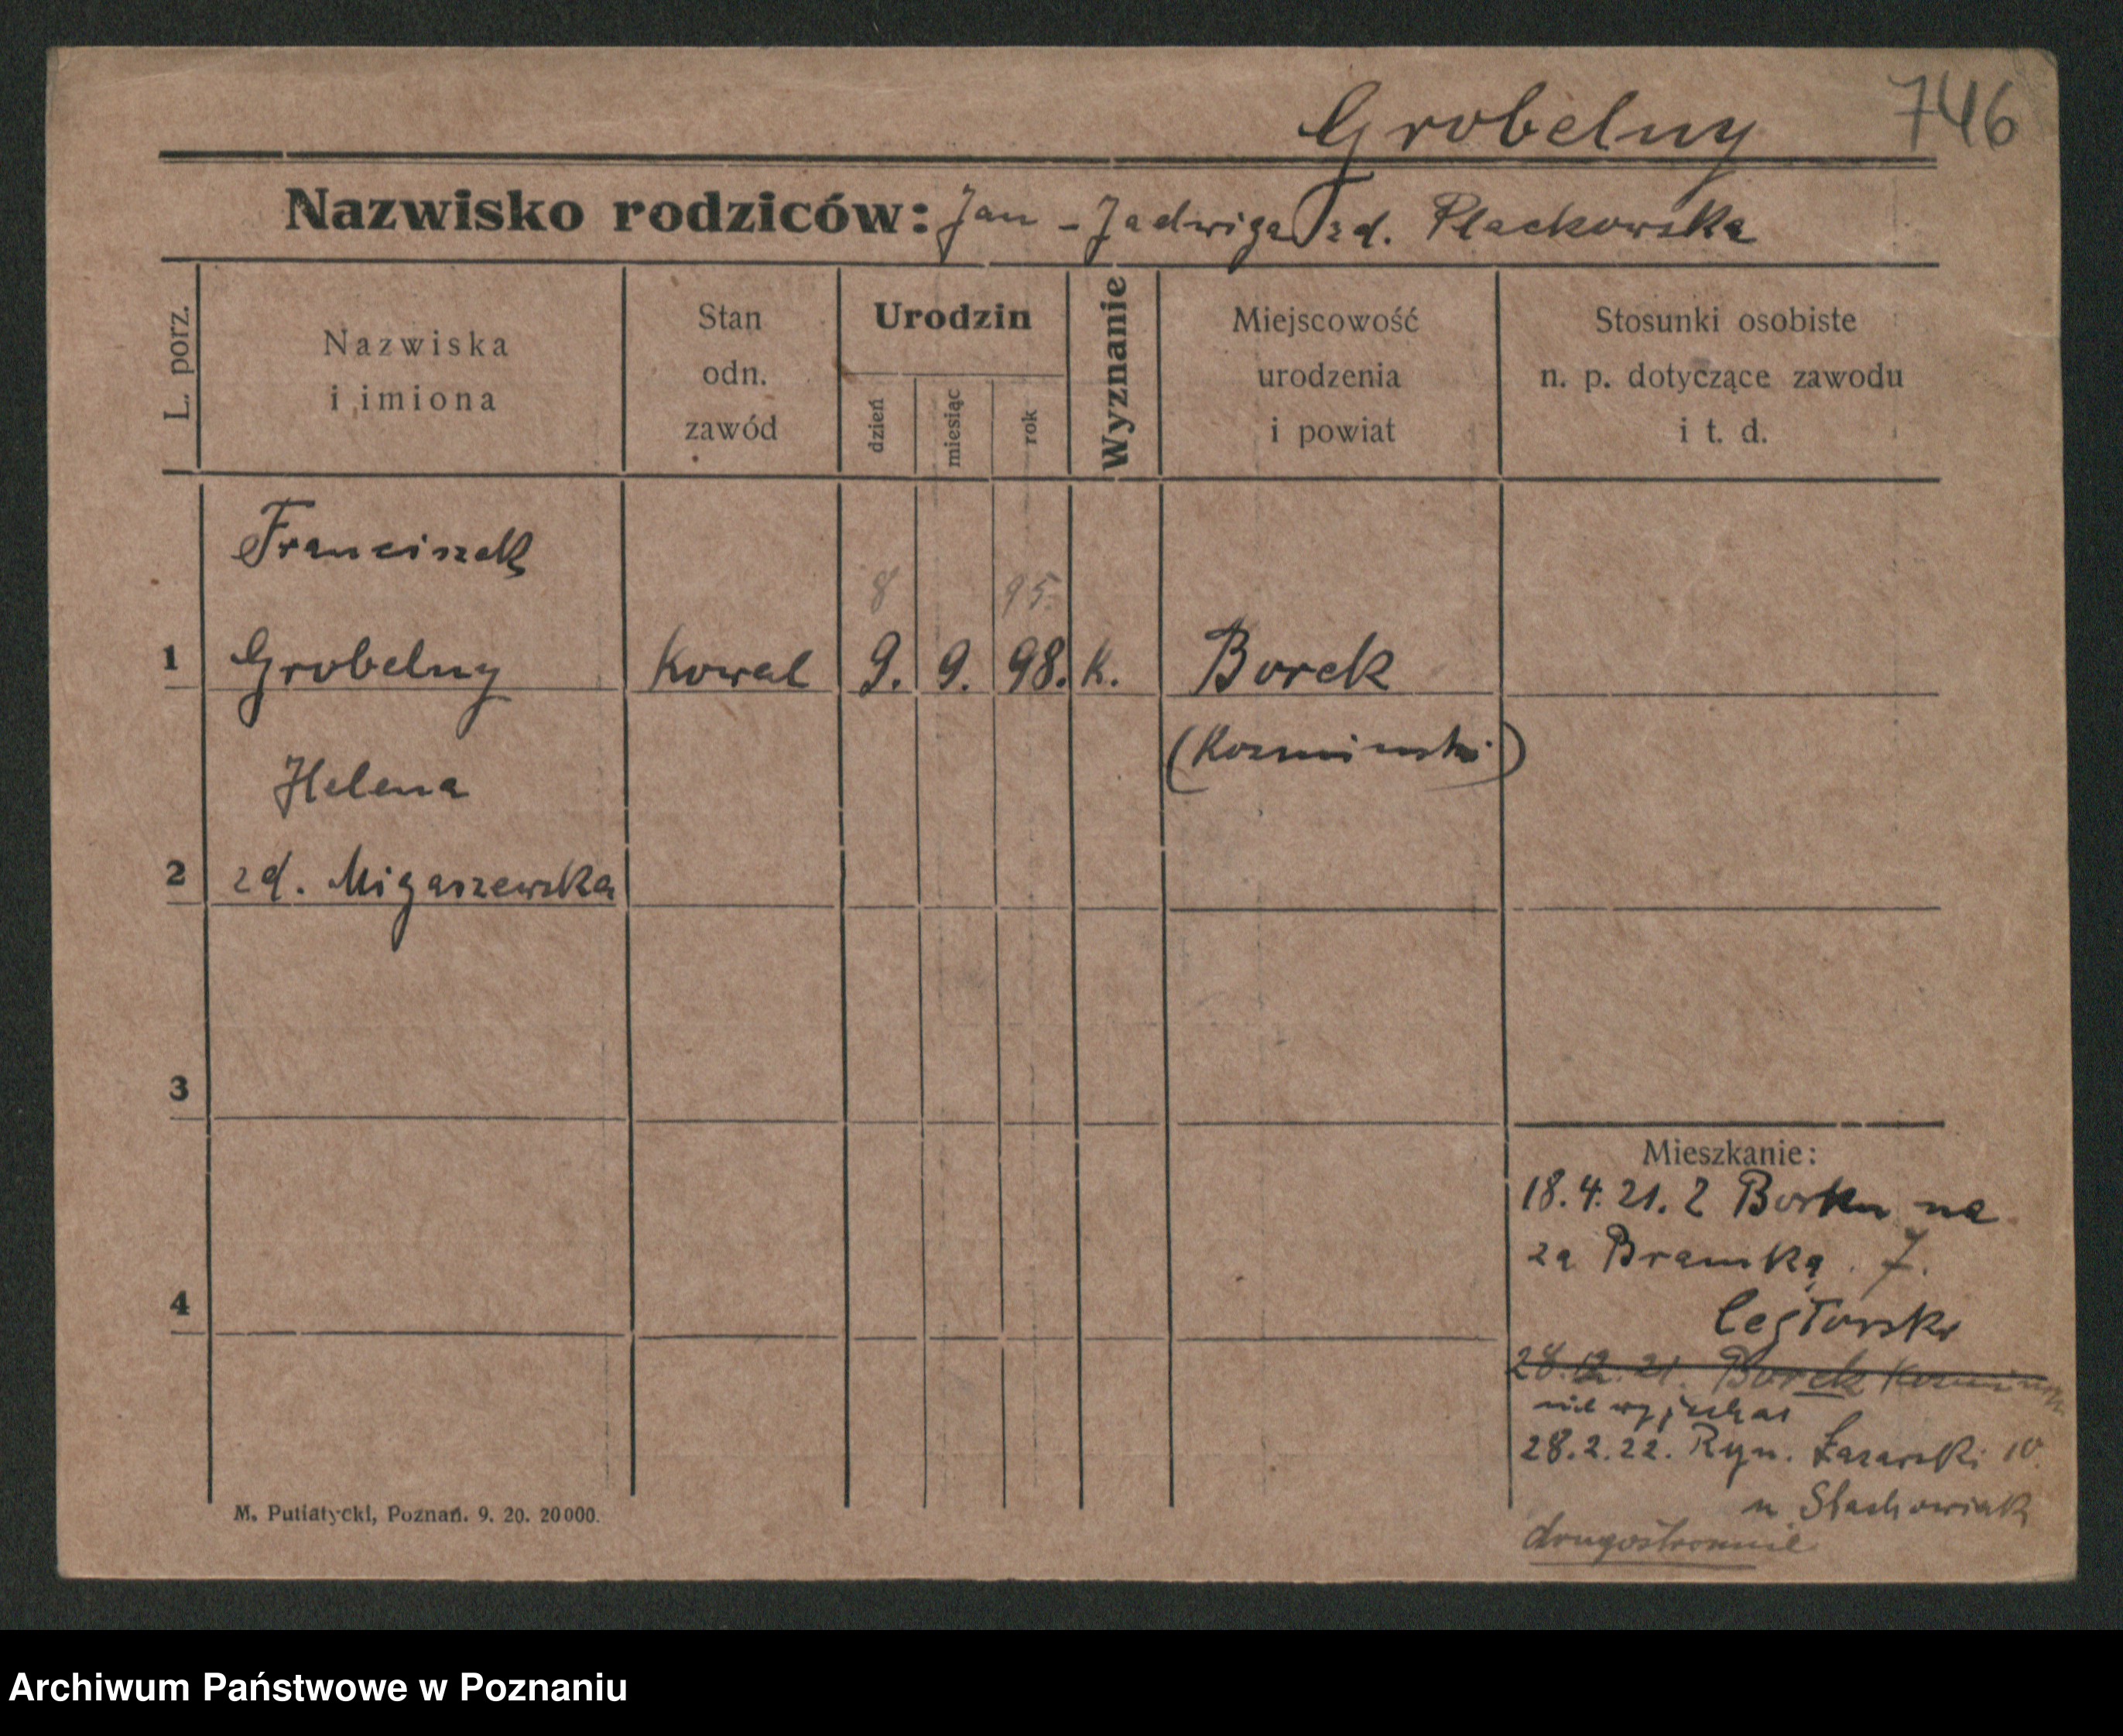 Grobelny 746
Nazwisko rodziców: Jan - Jadwiga zd. Plackowska
L. porz.
Nazwiska
i imiona
Stan
odn.
zawód
Urodzin
dzień
miesiąc
rok
Wyznanie
Miejscowość
urodzenia
i powiat
Stosunki osobiste
n. p. dotyczące zawodu
i t. d.
Franciszek
8 95.
1 Grobelny Kowal 9. 9. 98. k. Borek
(Kozminski)
Helena
2 zd. Migaszewska
3
4
Mieszkanie:
18.4.21. Z Borku na
za Bramką. 7.
28.12.21. Borek
nie wyjechał
28.2.22. Ryn. Łazarski 10.
u Stachowiak
drugostronnie
M. Putiatycki, Poznań. 9. 20. 20000.
Archiwum Państwowe w Poznaniu